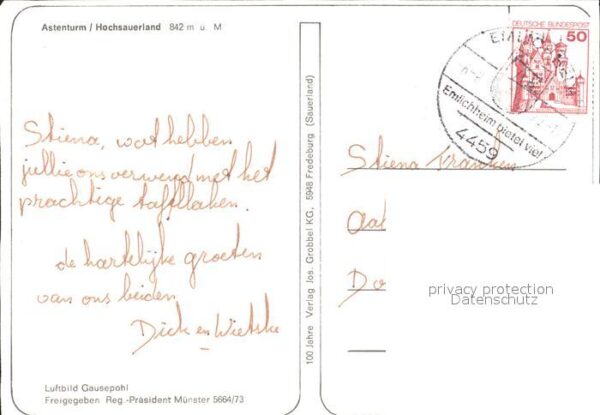 Astenturm / Hochsauerland 842 m ü. M
DEUTSCHE BUNDESPOST
50
Emlichheim bietet viel
4459
Stiena, wat hebben
jullie ons verwend met het
prachtige taffellaken.
de hartelijke groeten
van ons beiden
Dick en Wietske
100 Jahre Verlag Jos. Grobbel KG, 5948 Fredeburg (Sauerland)
Stiena
Aa
Do
privacy protection
Datenschutz
Luftbild Gausepohl
Freigegeben Reg.-Präsident Münster 5664/73